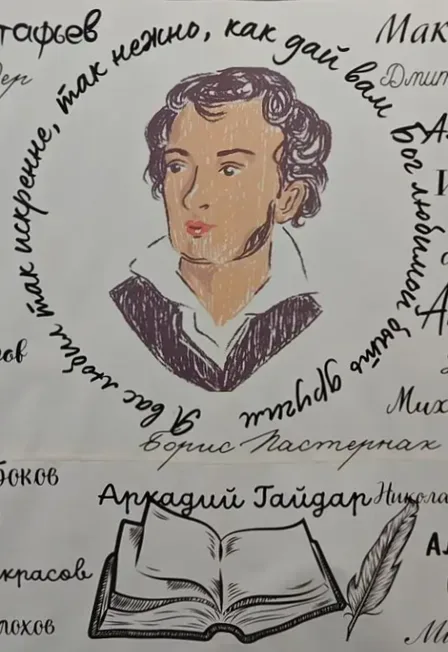 тафьев
Мак
дер
Дмит
Я вас любил так искренне, так нежно, как дай вам Бог любимой быть другим
ов
Мих
Борис Пастернак
боков
Аркадий Гайдар
Никола
красов
Ал
лохов